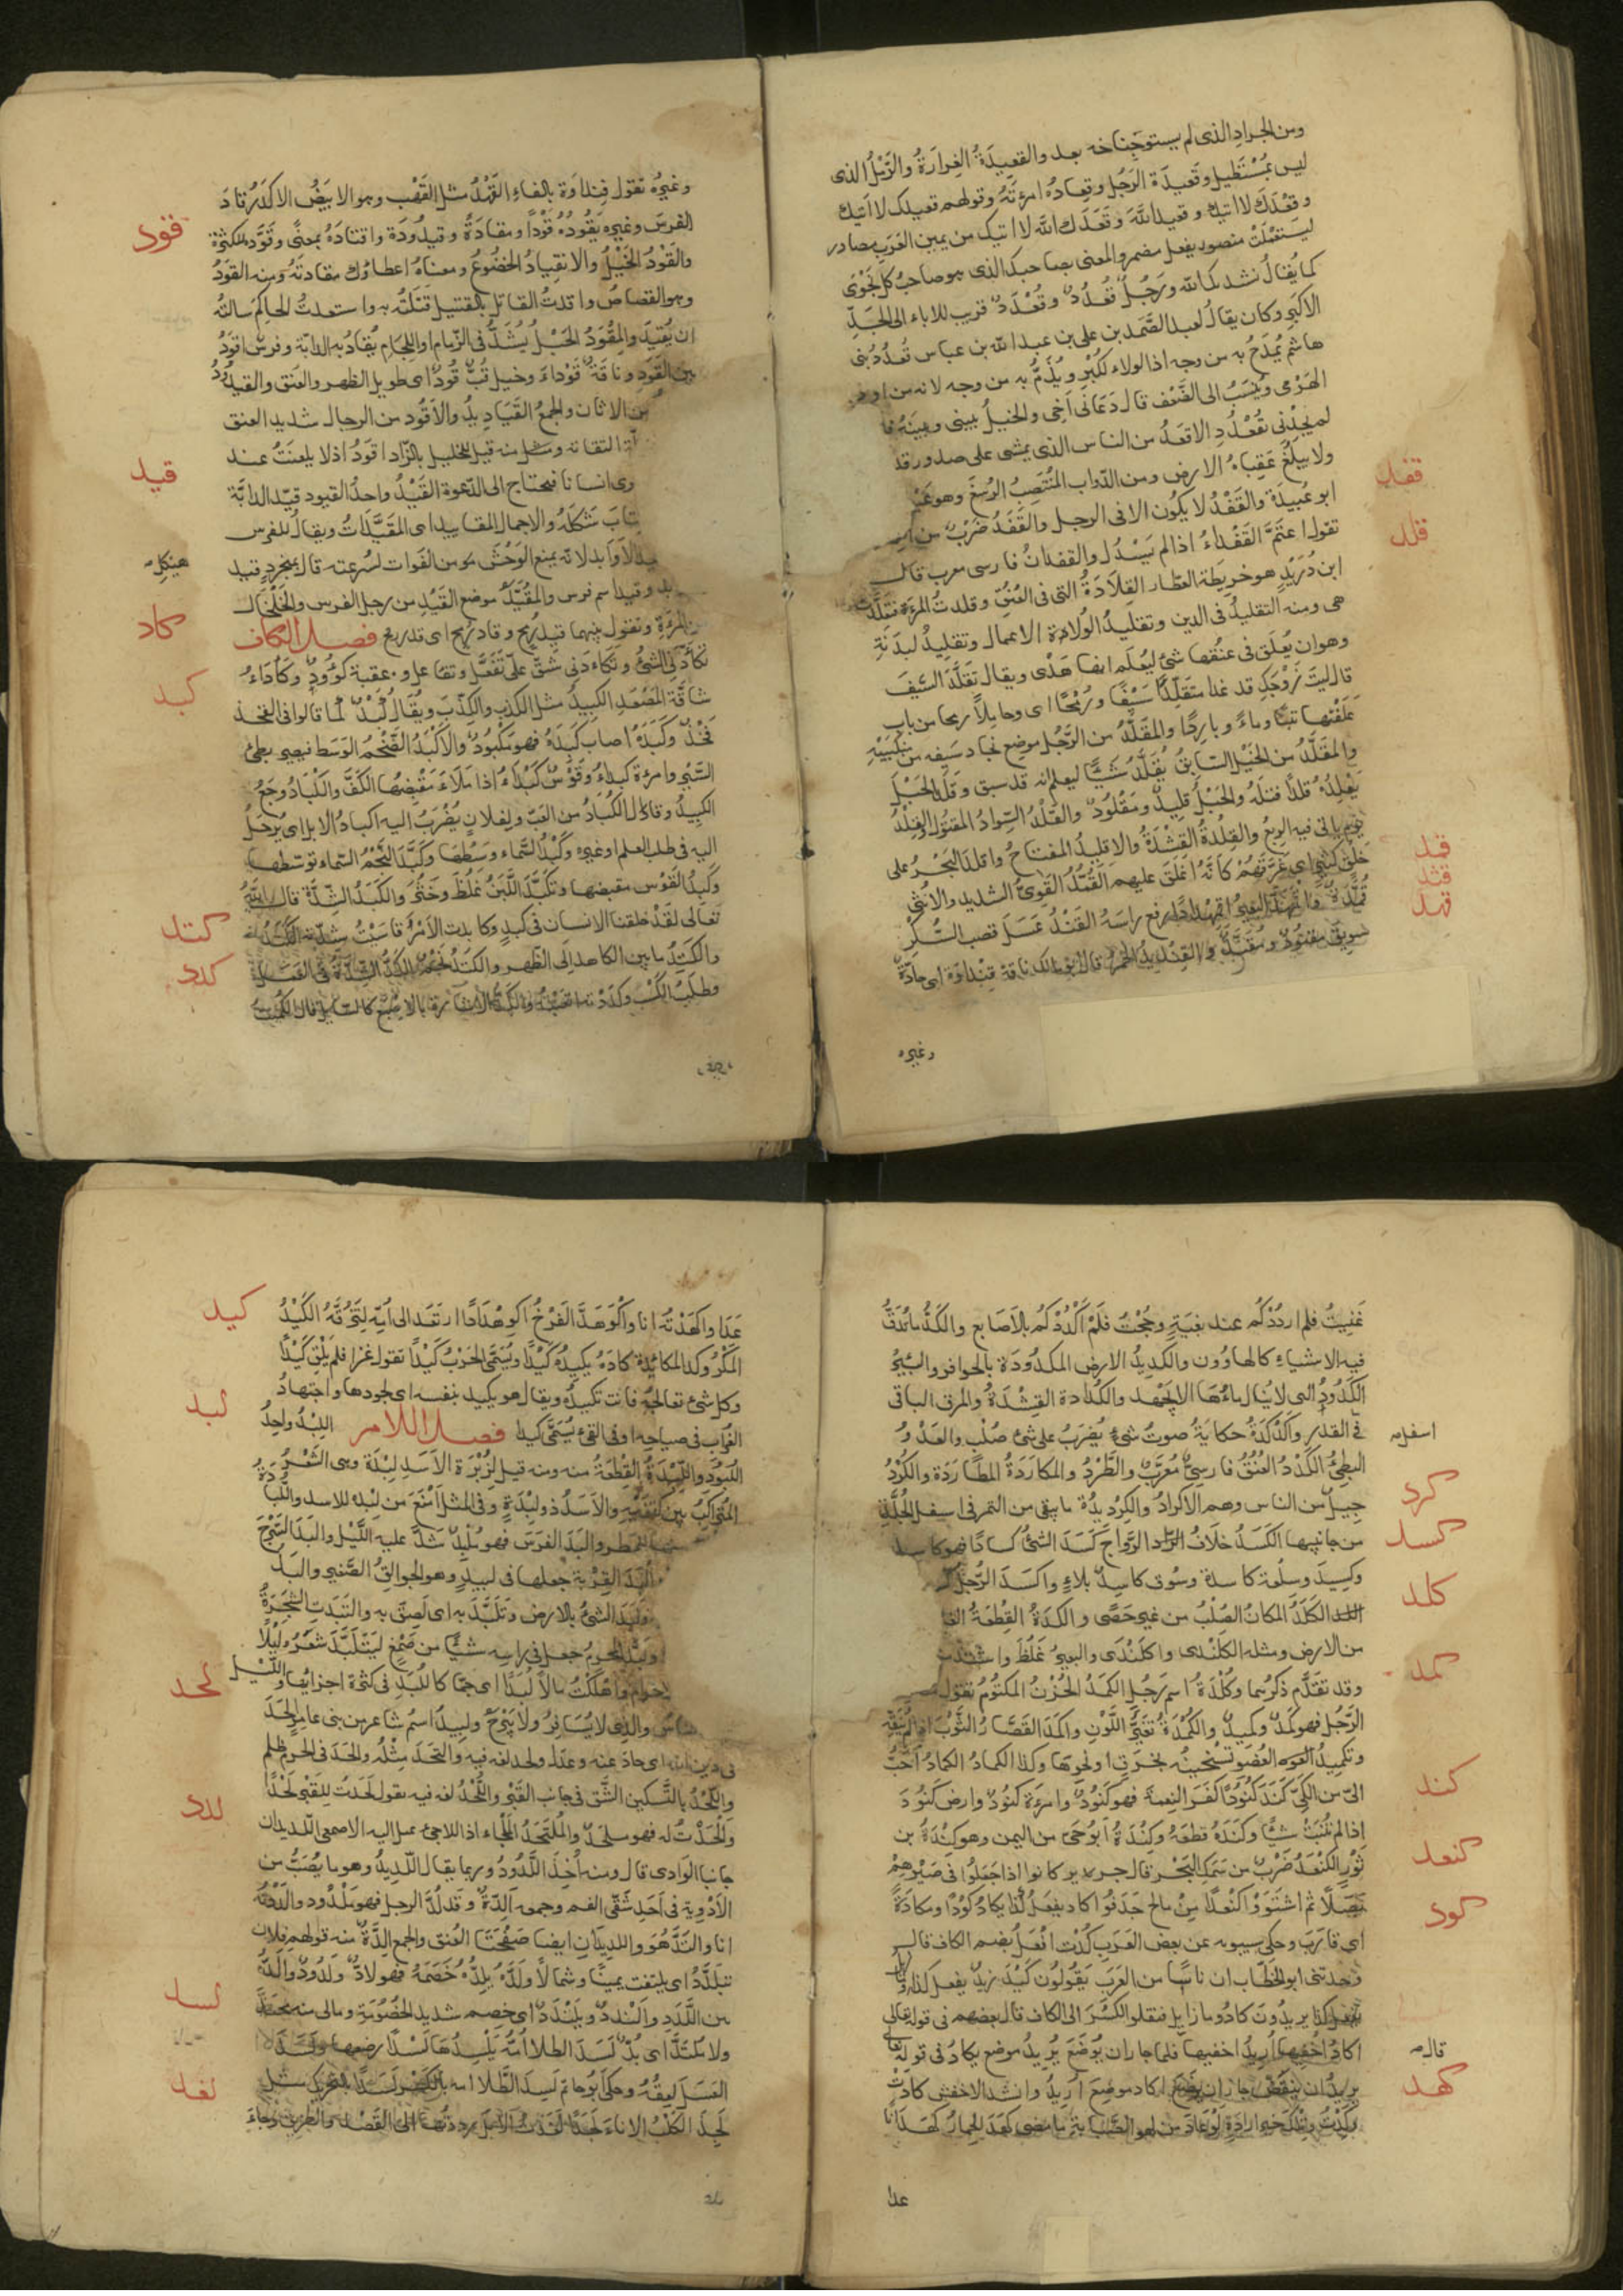 ومن الجراد الذى لم يستو جناحه بعد والقعيدة الغرارة والرمل الذى
ليس بمستطيل وقعيدة الرجل وقعاده امرءته وقولهم قعيدك لا اتيك
وقعدك لا اتيك وقعيدك الله وقعدك الله لا اتيك من يمين العرب مصادر
استعملت منصوبة بفعل مضمر والمعنى بصاحبك الذى هو صاحب كل نجوى
كما يقال نشدتك الله ورجل قعدد وقعدد قريب للاباء الى الجد
الاكبر وكان يقال لعبد الصمد بن على بن عبد الله بن عباس قعدد بنى
هاشم يمدح به من وجه اذ الولاء للكبر ويذم به من وجه لانه من اولاد
الهرمى وينسب الى الضعف قال دعانى اخى والخيل بينى وبينه فلما
لم يجدنى بقعدد الاقفد من الناس الذى يمشى على صدور قد
ولا يبلغ عقباه الارض ومن الدواب المنتصب الرسغ وهو عيب
ابو عبيدة والقفد لا يكون الا فى الرجل والقفد ضرب من
تقول اعتم القفداء اذا لم يسدل والقفدان فارسى معرب قال
ابن دريد هو خريطة العطار القلادة التى فى العنق وقلدت المرءة فتقلدت
هى ومنه التقليد فى الدين وتقليد الولاة الاعمال وتقليد البدنة
وهو ان يعلق فى عنقها شئ ليعلم انها هدى ويقال تقلدت السيف
قال ليت زوجك قد غدا متقلدا سيفا ورمحا اى وحاملا رمحا من باب
علفتها تبنا وماء باردا والمقلد من الرجل موضع نجاد سيفه من منكبيه
والمقلد من الخيل السابق يقلد شيئا ليعلم انه قد سبق وقلد الحبل
يقلده قلدا فتله والحبل قليد ومقلود والقلد السوار المفتول والقلد
يوم ياتى فيه الربع والقلدة القشدة والاقليد المفتاح واقلد البحر على
خلق كثير اى غرقهم كانه اغلق عليهم القمد القوى الشديد والانثى
قمدة واقمهد البعير اقمهدادا رفع راسه القند عسل قصب السكر
سويق مقنود ومقند والقنديد الخمر قال ابو مالك ناقة قنداوة اى حادة
وغيره
قفد
قلد
قمد
قند
قهد
وغيره تقول فنداوة بالفاء القهد مثل القهب وهو الابيض الاكدر قاد
الفرس وغيره يقوده قودا ومقادة وقيدودة واقتاده بمعنى وقود للكثرة
والقود الخيل والانقياد الخضوع ومعناه اعطاؤك مقادته ومنه القود
وهو القصاص واقدت القاتل بالقتيل قتلته به واستقدت الحاكم سالته
ان يقيد والمقود الحبل يشد فى الزمام او اللجام يقاد به الدابة وفرس اقود
بين القود وناقة قوداء وخيل قب قود اى طويل الظهر والعنق والقيدود
من الاتان والجمع القياديد والاقود من الرجال شديد العنق
التفاته ومثل منه قيل للبخيل بالزاد اقود اذ لا يلتفت عند
رى انسانا فيحتاج الى الدعوة القيد واحد القيود قيد الدابة
شكله والاجمال المقاييد اى المقيدات ويقال للفرس
الاوابد لانه يمنع الوحش من الفوات لسرعته قال بمنجرد قيد
وقيد اسم فرس والمقيد موضع القيد من رجل الفرس والخلخال
المرءة وتقول بينهما قيد رمح وقاد رمح اى قدر رمح فصل الكاف
تكأدنى الشئ وتكاءدنى شق على تفعل وتفاعل وعقبة كؤود وكأداء
شاقة المصعد الكبد مثل الكذب والكذب ويقال كبد كما قالوا فى الفخذ
فخذ وكبده اصاب كبده فهو مكبود والاكبد الضخم الوسط فيصير بطئ
السير وامرءة كبداء وقوس كبداء اذا ملاء مقبضها الكف والكباد وجع
الكبد وقال الكباد من العب وفلان يضرب اليه اكباد الابل اى يرحل
اليه فى طلب العلم او غيره وكبد السماء وسطها وكبد النجم السماء توسطها
وكبد القوس مقبضها وتكبد اللبن غلظ وخثر والكبد الشدة قال الله
تعالى لقد خلقنا الانسان فى كبد وكابدت الامر قاسيت شدته الكتد
والكتد ما بين الكاهل الى الظهر والكتد نجم الكد الشدة فى العمل
وطلب الكسب وكددته اتعبته والكد الاشارة بالاصبع كالسايل قال الكميت
قود
قيد
هيكل
كاد
كبد
كتد
كدد
غنيت فلم ارددكم عند بغية وحجت فلم اكددكم بالاصابع والكد ما يدق
فيه الاشياء كالهاوون والكديد الارض المكدودة بالحوافر والبئر
الكدود التى لا ينال ماءها الا بجهد والكدادة القشدة والمرق الباقى
فى القدر والكدكدة حكاية صوت شئ يضرب على شئ صلب والعدو
البطئ الكرد العنق فارسى معرب والطرد والمكاردة المطاردة والكرد
جيل من الناس وهم الاكراد والكرديدة ما يبقى من التمر فى اسفل الجلة
من جانبيها الكسد خلاف الرواج كسد الشئ كسادا فهو كاسد
وكسيد وسلعة كاسدة وسوق كاسد بلا هاء واكسد الرجل
الكلد المكان الصلب من غير حصى والكلدة القطعة
من الارض ومثله الكلندى واكلندى والبعير غلظ واشتد
وقد تقدم ذكرهما وكلدة اسم رجل الكمد الحزن المكتوم تقول
الرجل فهو كمد وكميد والكمدة تغير اللون واكمد القصار الثوب اذا لم ينقه
وتكميد العضو تسخينه بخرق او نحوها وكذا الكماد الكماد احب
الى من الكى كند كنودا كفر النعمة فهو كنود وامرءة كنود وارض كنود
اذا لم تنبت شيئا وكنده قطعه وكندة ابو حى من اليمن وهو كندة بن
ثور الكنعد ضرب من سمك البحر قال جرير كانوا اذا جعلوا فى صيرهم
بصلا ثم اشتووا كنعدا من مالح جدفوا كاد يفعل كذا يكاد كودا ومكادة
اى قارب وحكى سيبويه عن بعض العرب كدت افعل بضم الكاف قال
وحدثنى ابو الخطاب ان ناسا من العرب يقولون كيد زيد يفعل كذا وما زيل
يفعل كذا يريدون كاد وما زايل فنقلوا الكسر الى الكاف قال بعضهم فى قوله تعالى
اكاد اخفيها اريد اخفيها فلما جاز ان يوضع يريد موضع يكاد فى قوله تعالى
يريد ان ينقض جاز ان يوضع اكاد موضع اريد وانشد الاخفش كادت
وكدت وتلك خير ارادة لو عاد من لهو الصبابة ما مضى كهد الحمار كهدانا
عدا
اسفل
كرد
كسد
كلد
كمد
كند
كنعد
كود
قال
كهد
عدا واكهدته انا واكوهد الفرخ اكوهدادا ارتعد الى امه لتزقه الكيد
المكر وكذا المكائدة كاده يكيده كيدا ويسمى الحرب كيدا تقول غزا فلم يلق كيدا
وكل شئ تعالجه فانت تكيده ويقال هو يكيد بنفسه اى يجود بها واجتهاد
الغراب فى صياحه او فى القئ يسمى كيدا فصل اللام اللبد واحد
اللبود واللبدة القطعة منه ومنه قيل لزبرة الاسد لبدة وهى الشعر
المتراكب بين كتفيه والاسد ذو لبدة وفى المثل امنع من لبدة للاسد واللبادة
للمطر والبد الفرس فهو ملبد شد عليه اللبد والبد السرج
البد القربة جعلها فى لبيد وهو الجوالق الصغير والبد
ولبد الشئ بالارض وتلبد به اى لصق به والتبدت الشجرة
ولبد المحرم جعل فى راسه شيئا من صمغ ليتلبد شعره لئلا
احرام واهلكت مالا لبدا اى جما كاللبد فى كثرة اجزائها
والذى لا يسافر ولا يبرح ولبيد اسم شاعر من بنى عامر الحد
فى دين الله اى حاد عنه وعدل ولحد لغة فيه والتحد مثله والحد فى الحرم ظلم
واللحد بالتسكين الشق فى جانب القبر واللحد لغة فيه تقول لحدت للقبر لحدا
والحدت له فهو ملحد والملتحد الملجاء اذ اللاجئ يميل اليه الاصمعى اللديدان
جانبا الوادى قال ومنه اخذ اللدود وربما يقال اللديد وهو ما يصب من
الادوية فى احد شقى الفم وجمعه الدة وقد لد الرجل فهو ملدود والددته
انا والتد هو واللديدان ايضا صفحتا العنق والجمع الدة منه قولهم فلان
يتلدد اى يلتفت يمينا وشمالا ولده يلده خصمه فهو لاد ولدود والد
بين اللدد والندد ويلندد اى خصم شديد الخصومة ومالى منه محتد
ولا ملتد اى بد لسد الطلا امه يلسدها لسدا رضعها ولسد
العسل لعقه وحكى ابو حاتم لسد الطلا امه بالكسر لسدا بالتحريك مثل
لجذ الكلب الاناء لجذا لغدت الابل رددتها الى القصد والطريق وجاء
كيد
لبد
لحد
لدد
لسد
لغد